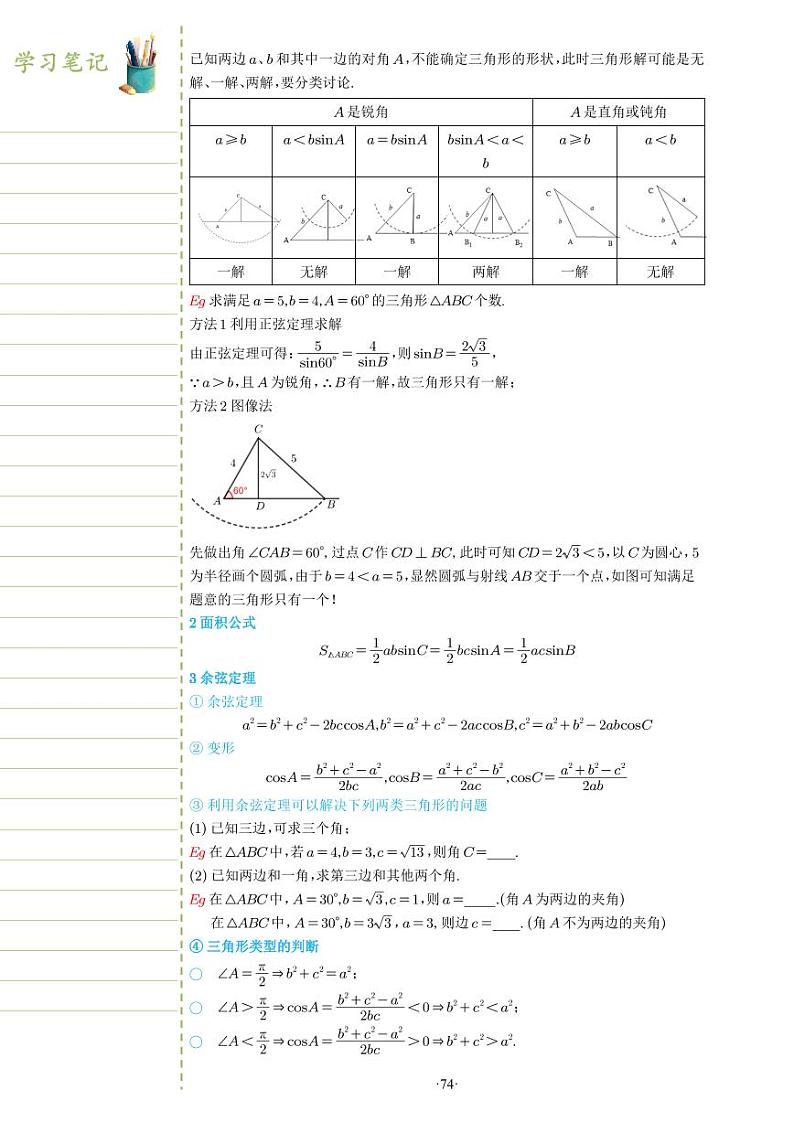 学习笔记
已知两边a、b和其中一边的对角A,不能确定三角形的形状,此时三角形解可能是无
解、一解、两解,要分类讨论.
A是锐角 A是直角或钝角
a⩾b a<bsinA a=bsinA bsinA<a<b a⩾b a<b
一解 无解 一解 两解 一解 无解
Eg 求满足a=5,b=4,A=60°的三角形△ABC个数.
方法1 利用正弦定理求解
由正弦定理可得: 5/sin60° = 4/sinB,则sinB= 2√3/5,
∵a>b,且A为锐角,∴B有一解,故三角形只有一解;
方法2 图像法
C
4 5
2√3
60°
A D B
先做出角∠CAB=60°,过点C作CD⊥BC,此时可知CD=2√3<5,以C为圆心,5
为半径画个圆弧,由于b=4<a=5,显然圆弧与射线AB交于一个点,如图可知满足
题意的三角形只有一个!
2 面积公式
S△ABC=1/2absinC=1/2bcsinA=1/2acsinB
3 余弦定理
① 余弦定理
a²=b²+c²-2bccosA,b²=a²+c²-2accosB,c²=a²+b²-2abcosC
② 变形
cosA=(b²+c²-a²)/2bc,cosB=(a²+c²-b²)/2ac,cosC=(a²+b²-c²)/2ab
③ 利用余弦定理可以解决下列两类三角形的问题
(1) 已知三边,可求三个角;
Eg 在△ABC中,若a=4,b=3,c=√13,则角C=____.
(2) 已知两边和一角,求第三边和其他两个角.
Eg 在△ABC中,A=30°,b=√3,c=1,则a=____.(角A为两边的夹角)
在△ABC中,A=30°,b=3√3,a=3,则边c=____.(角A不为两边的夹角)
④ 三角形类型的判断
○ ∠A=π/2⇒b²+c²=a²;
○ ∠A>π/2⇒cosA=(b²+c²-a²)/2bc<0⇒b²+c²<a²;
○ ∠A<π/2⇒cosA=(b²+c²-a²)/2bc>0⇒b²+c²>a².
·74·